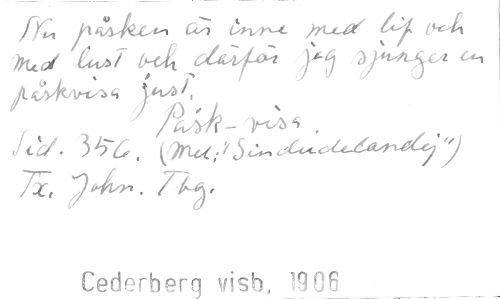 Nu påsken är inne med lif och
med lust och därför jag sjunger en
påskvisa just.
Påsk-visa.
Sid. 356. (Mel: "Sindudelandej")
Tx. John. Tbg.
Cederberg visb. 1906